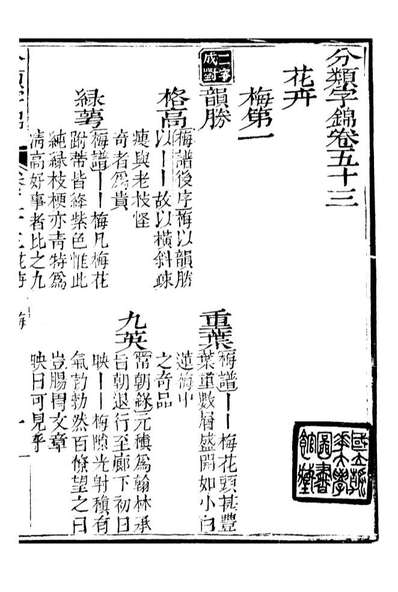 分類字錦卷五十三
花卉
梅第一
二字成對
韻勝
格高
梅譜後序梅以韻勝
以——故以橫斜疎
瘦與老枝怪
奇者為貴
重葉
梅譜——梅花頭甚豐
葉重數層盛開如小白
蓮梅中
之奇品
綠萼
梅譜——梅凡梅花
跗蒂皆絳紫色惟此
純綠枝梗亦青特為
清高好事者比之九
九英
常朝錄元稹為翰林承
旨朝退行至廊下初日
映——梅隙光射稹有
氣勃勃然百僚望之曰
豈腸胃文章
映日可見乎
國立清
華大學
圖書
館藏